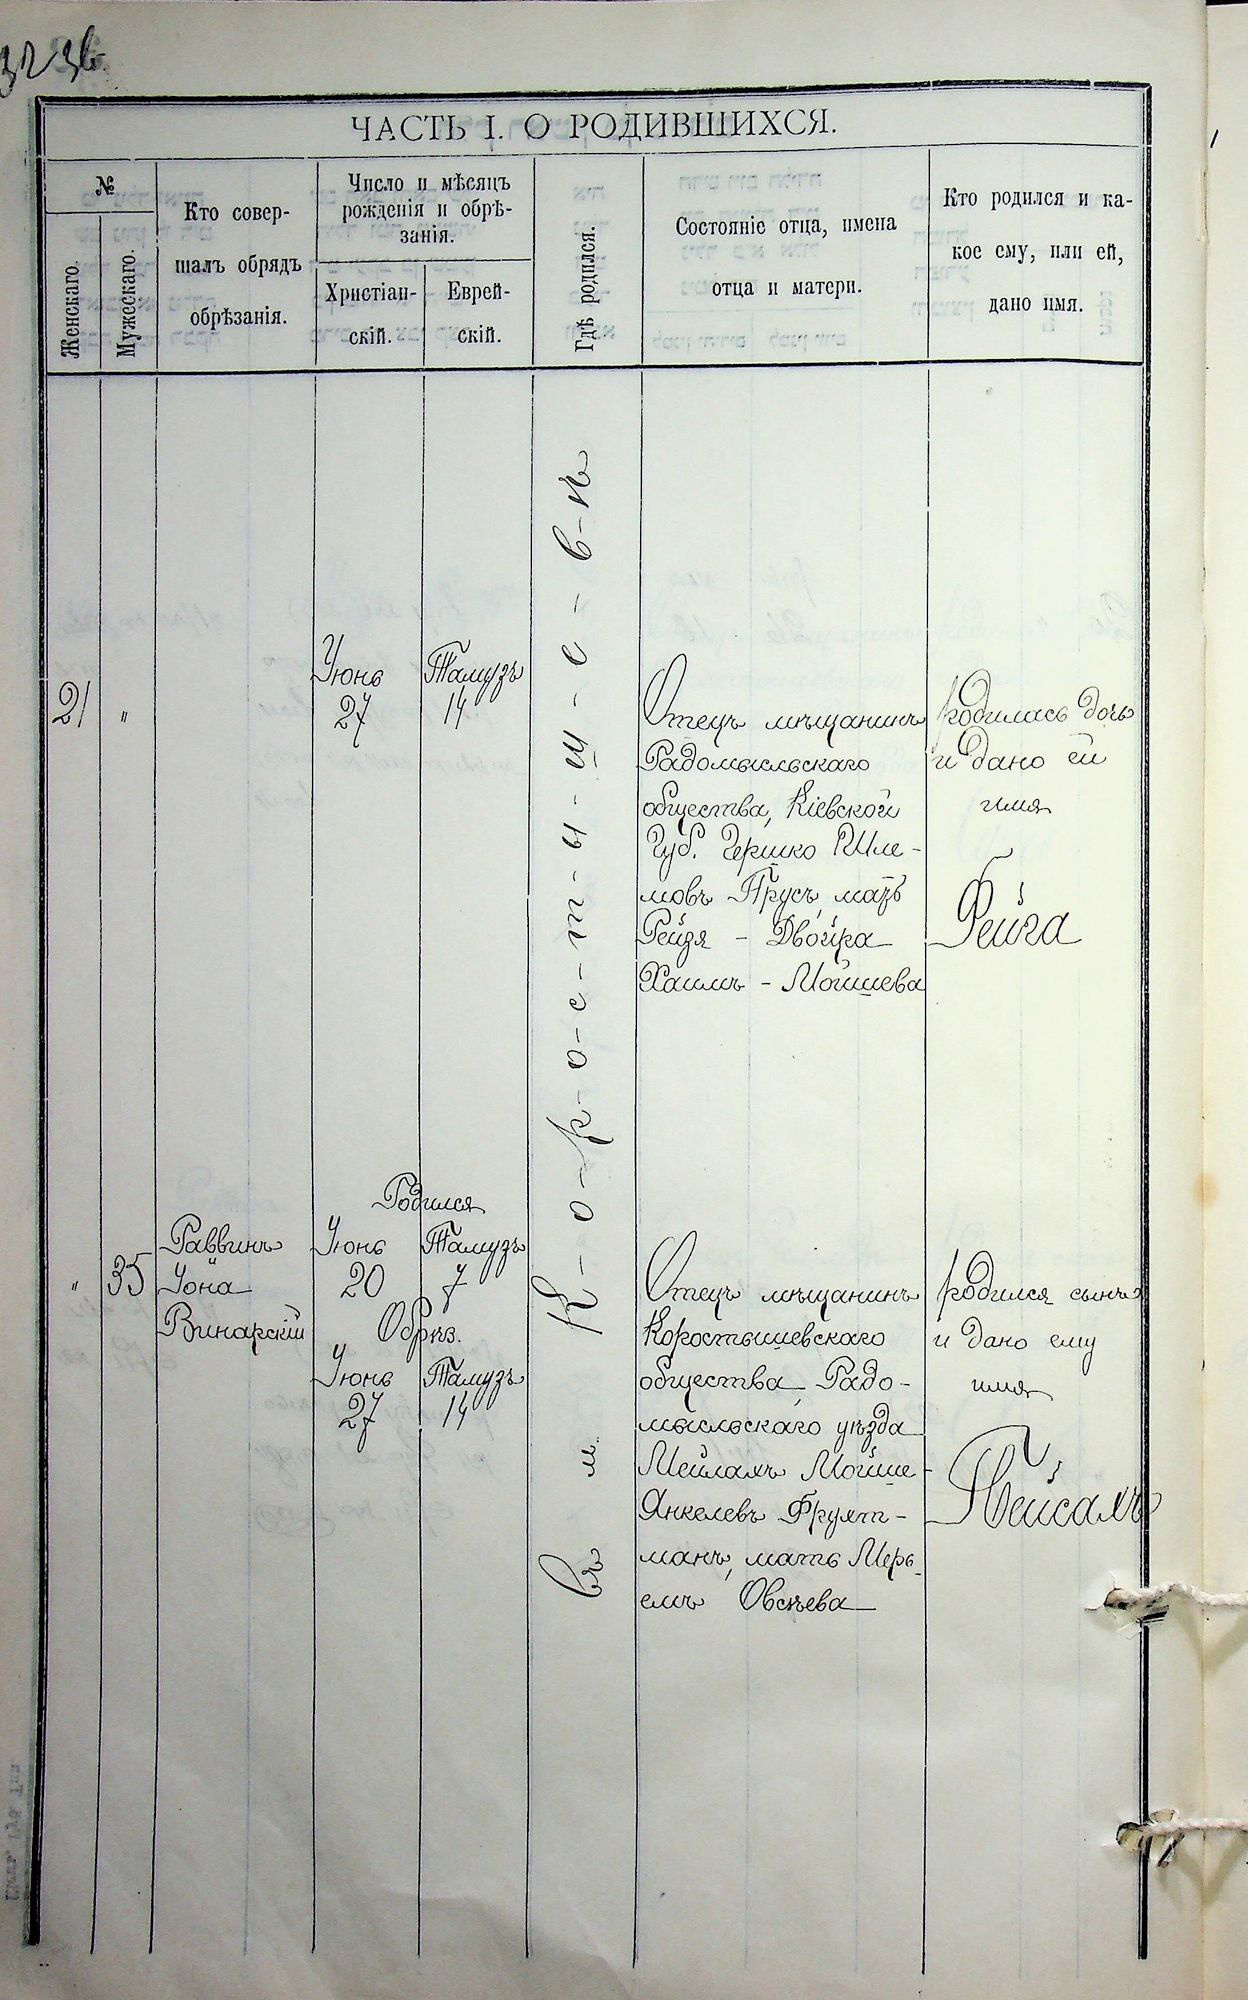 ЧАСТЬ I. О РОДИВШИХСЯ.
№
Женскаго.
Мужескаго.
Кто совер-
шалъ обрядъ
обрѣзанія.
Число и мѣсяцъ
рожденія и обрѣ-
занія.
Христіан-
скій.
Еврей-
скій.
Гдѣ родился.
Состояніе отца, имена
отца и матери.
Кто родился и ка-
кое ему, или ей,
дано имя.
Въ м. К-о-р-о-с-т-ы-ш-е-в-ѣ
21
"
Іюнь
27
Тамузъ
14
Отецъ мѣщанинъ
Радомысльскаго
общества, Кіевской
Губ. Гершко Шле-
мовъ Трусъ, мать
Рейзя - Двойра
Хаимъ - Мойшева
родилась дочь
и дано ей
имя
Фейга
"
35
Раввинъ
Іона
Винарскій
Родился
Іюнь
20
Тамузъ
7
Обрѣз.
Іюнь
27
Тамузъ
14
Отецъ мѣщанинъ
Коростышевскаго
общества Радо-
мысльскаго уѣзда
Мейлахъ Мойше-
Янкелевъ Фрухт-
манъ, мать Мерь-
емъ Овсѣева
родился сынъ
и дано ему
имя
Пейсахъ